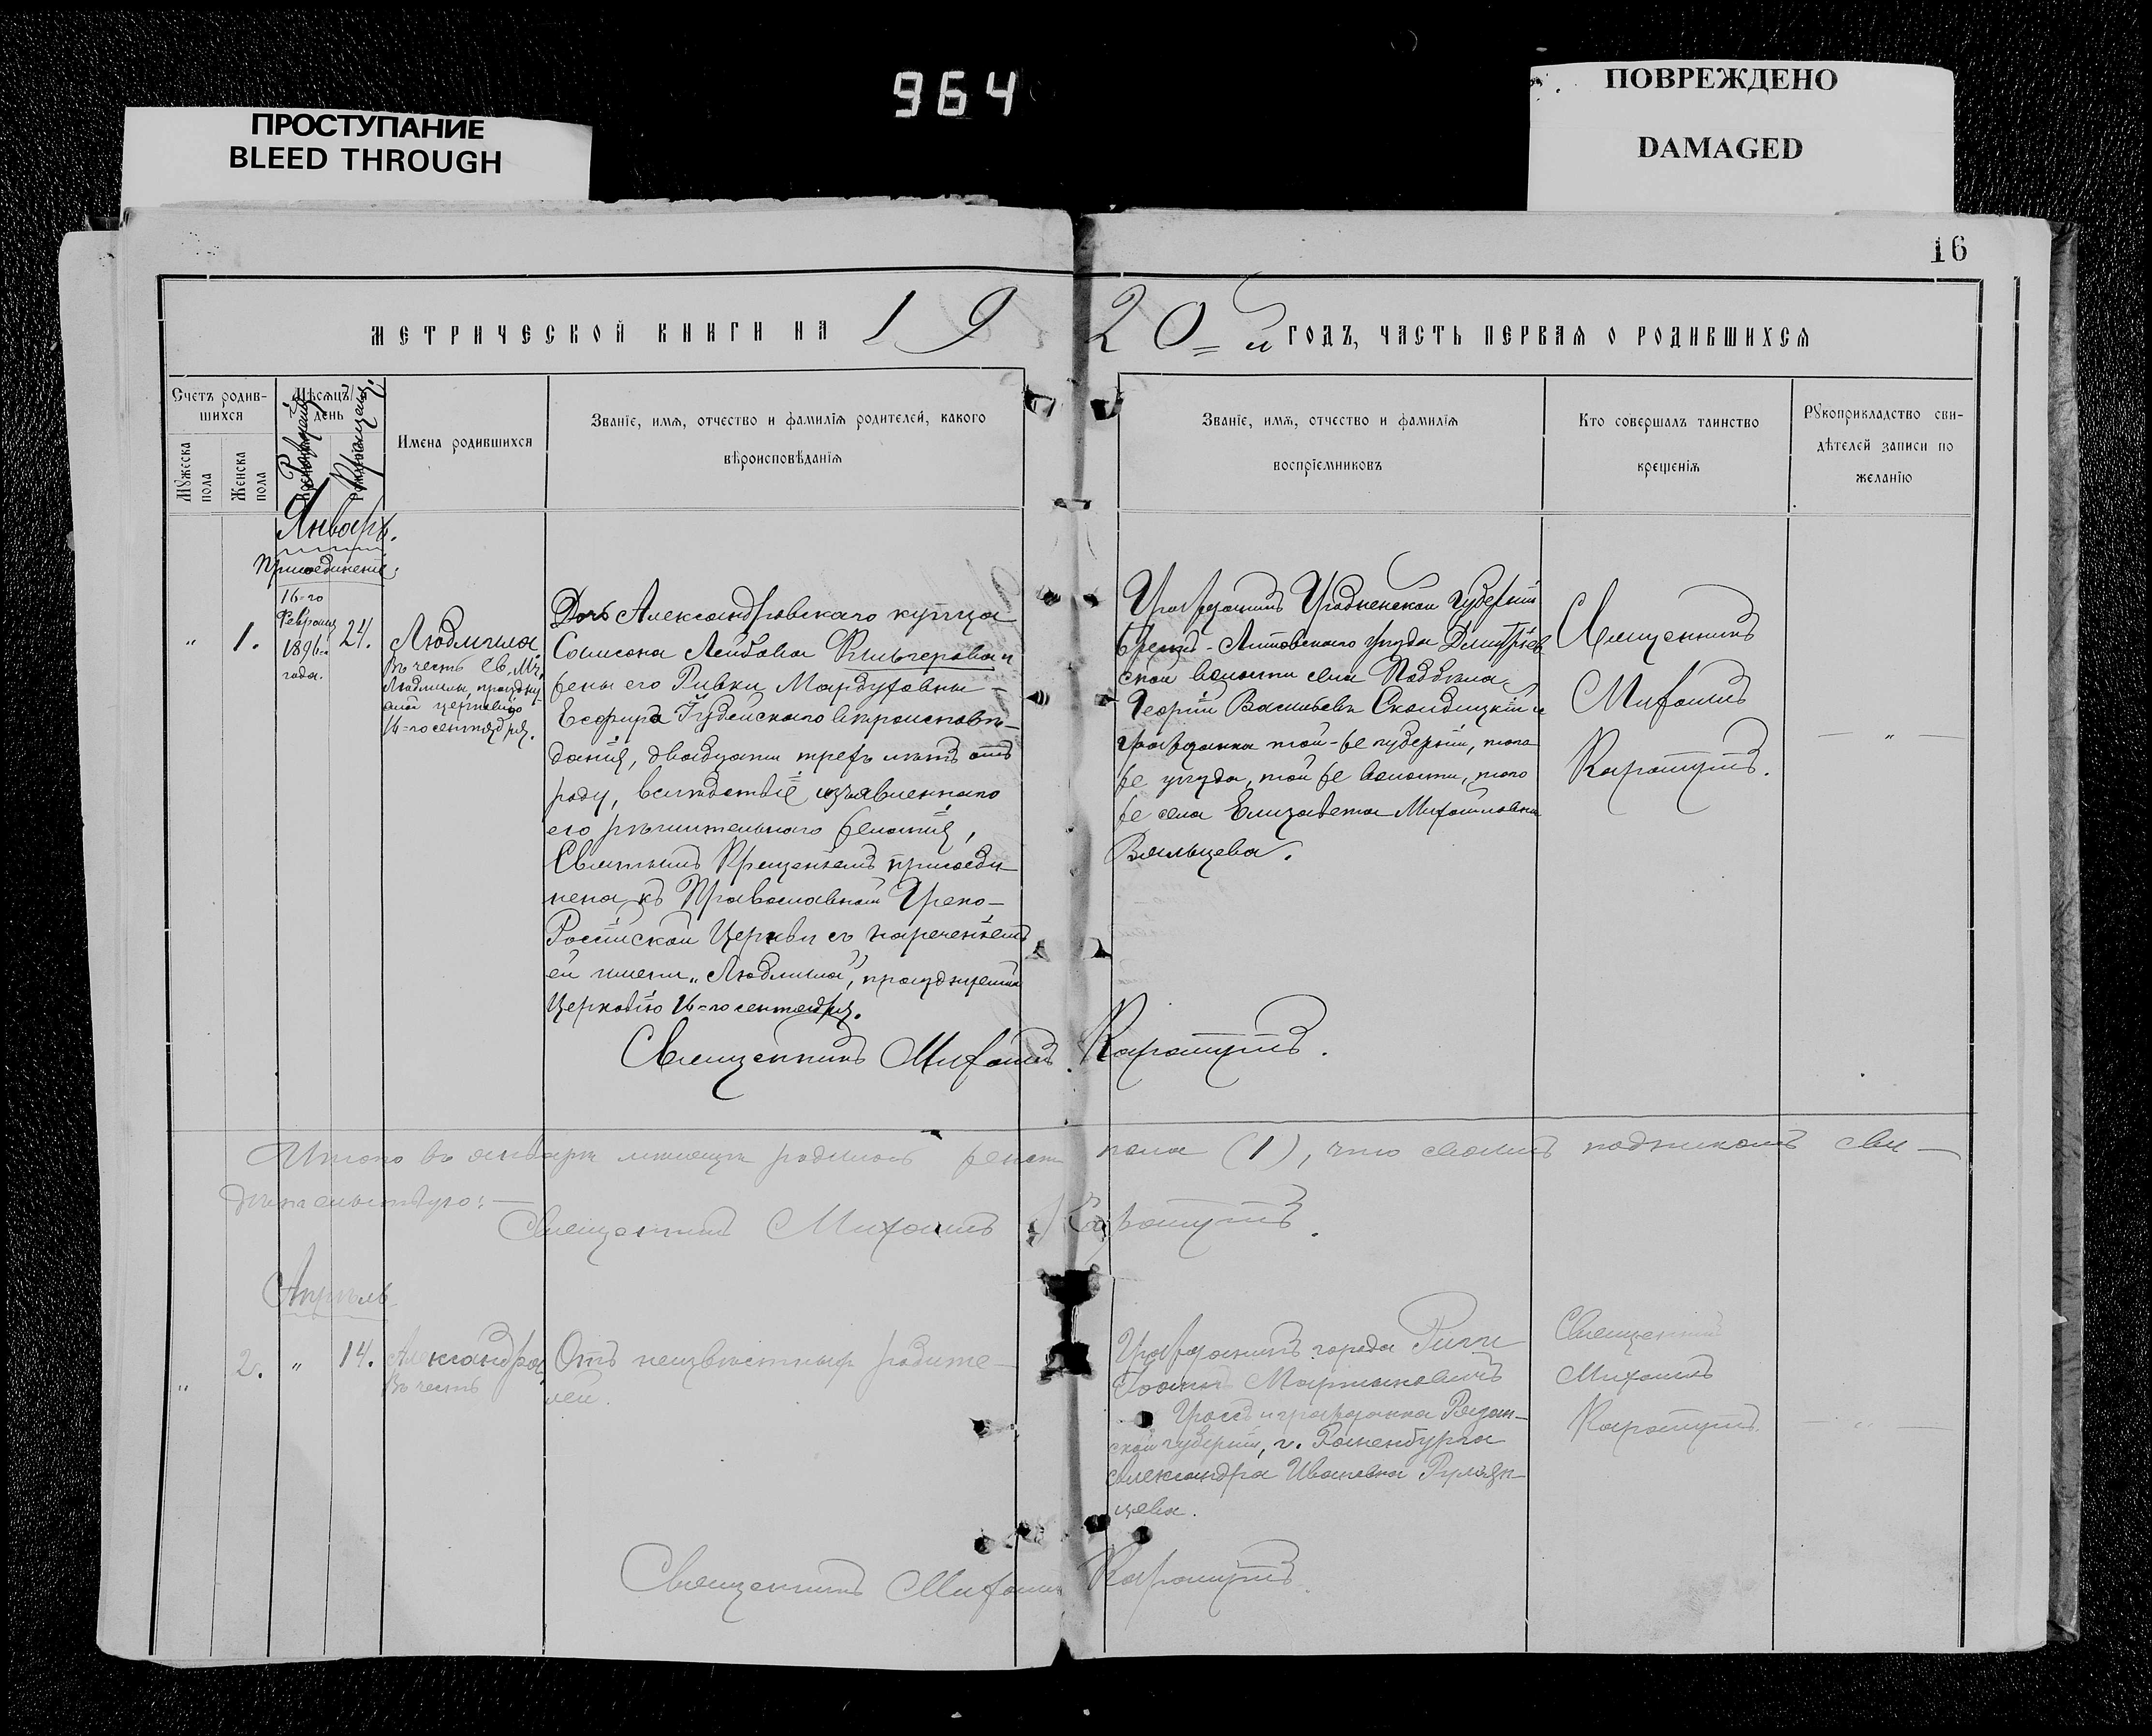 964
ПРОСТУПАНИЕ
BLEED THROUGH
ПОВРЕЖДЕНО
DAMAGED
16
МЕТРИЧЕСКОЙ КНИГИ НА 1920-й ГОДЪ, ЧАСТЬ ПЕРВАЯ О РОДИВШИХСЯ
Счетъ родив-
шихся
Мужеска пола
Женска пола
Мѣсяцъ/
день
Имена родившихся
Званіе, имя, отчество и фамилія родителей, какого
вѣроисповѣданія
Званіе, имя, отчество и фамилія
воспріемниковъ
Кто совершалъ таинство
крещенія
Рукоприкладство сви-
дѣтелей записи по
желанію
Январь.
Присоединеніе:
„ 1.
16-го
Февраля
1896-
года.
24.
Людмила
Въ честь Св. Мч.
Людмилы, праздну-
емой церковію
16-го сентября.
Дочь Александровскаго купца
Самсона Лейбова и
жены его Ривки Мардуховны –
Есфирь Іудейскаго вѣроисповѣ-
данія, двадцати трехъ лѣтъ отъ
роду, вслѣдствіе изъявленнаго
его рѣшительнаго желанія,
Святымъ Крещеніемъ присоеди-
нена къ Православной Греко-
Россійской Церкви съ нареченіемъ
ей имени „Людмила", празднуемой
Церковію 16-го сентября.
Священникъ Михаилъ Каратупъ.
Гражданинъ Гродненской Губерніи
Брестъ-Литовскаго уѣзда Дмитріев
ской волости села
Георгій Васильевъ и
гражданка той-же губерніи, того
же уѣзда, той же волости, того
же села Елизавета Михайловна
Вяльцева.
Священникъ
Михаилъ
Каратупъ.
– „ –
Итого въ январѣ мѣсяцѣ родилось женска пола (1), что своимъ подписомъ сви-
дѣтельствую:–
Священникъ Михаилъ Каратупъ.
Апрѣль
„ 2. „ 14.
Александра
Въ честь
Отъ неизвѣстныхъ родите-
лей.
Гражданинъ города Риги
Мартиновичъ
Гроссъ и гражданка Рязан-
ской губерніи, г. Раненбурга
Александра Ивановна Румян-
цева.
Священникъ
Михаилъ
Каратупъ.
– „ –
Священникъ Михаилъ Каратупъ.